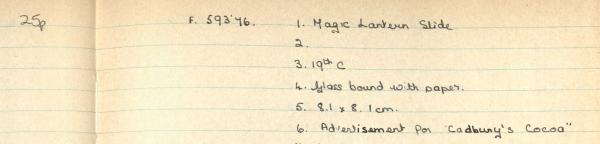 25p F. 593'76. 1. Magic Lantern Slide
2.
3. 19th C
4. Glass bound with paper.
5. 8.1 x 8.1cm.
6. Advertisement for "Cadbury's Cocoa"